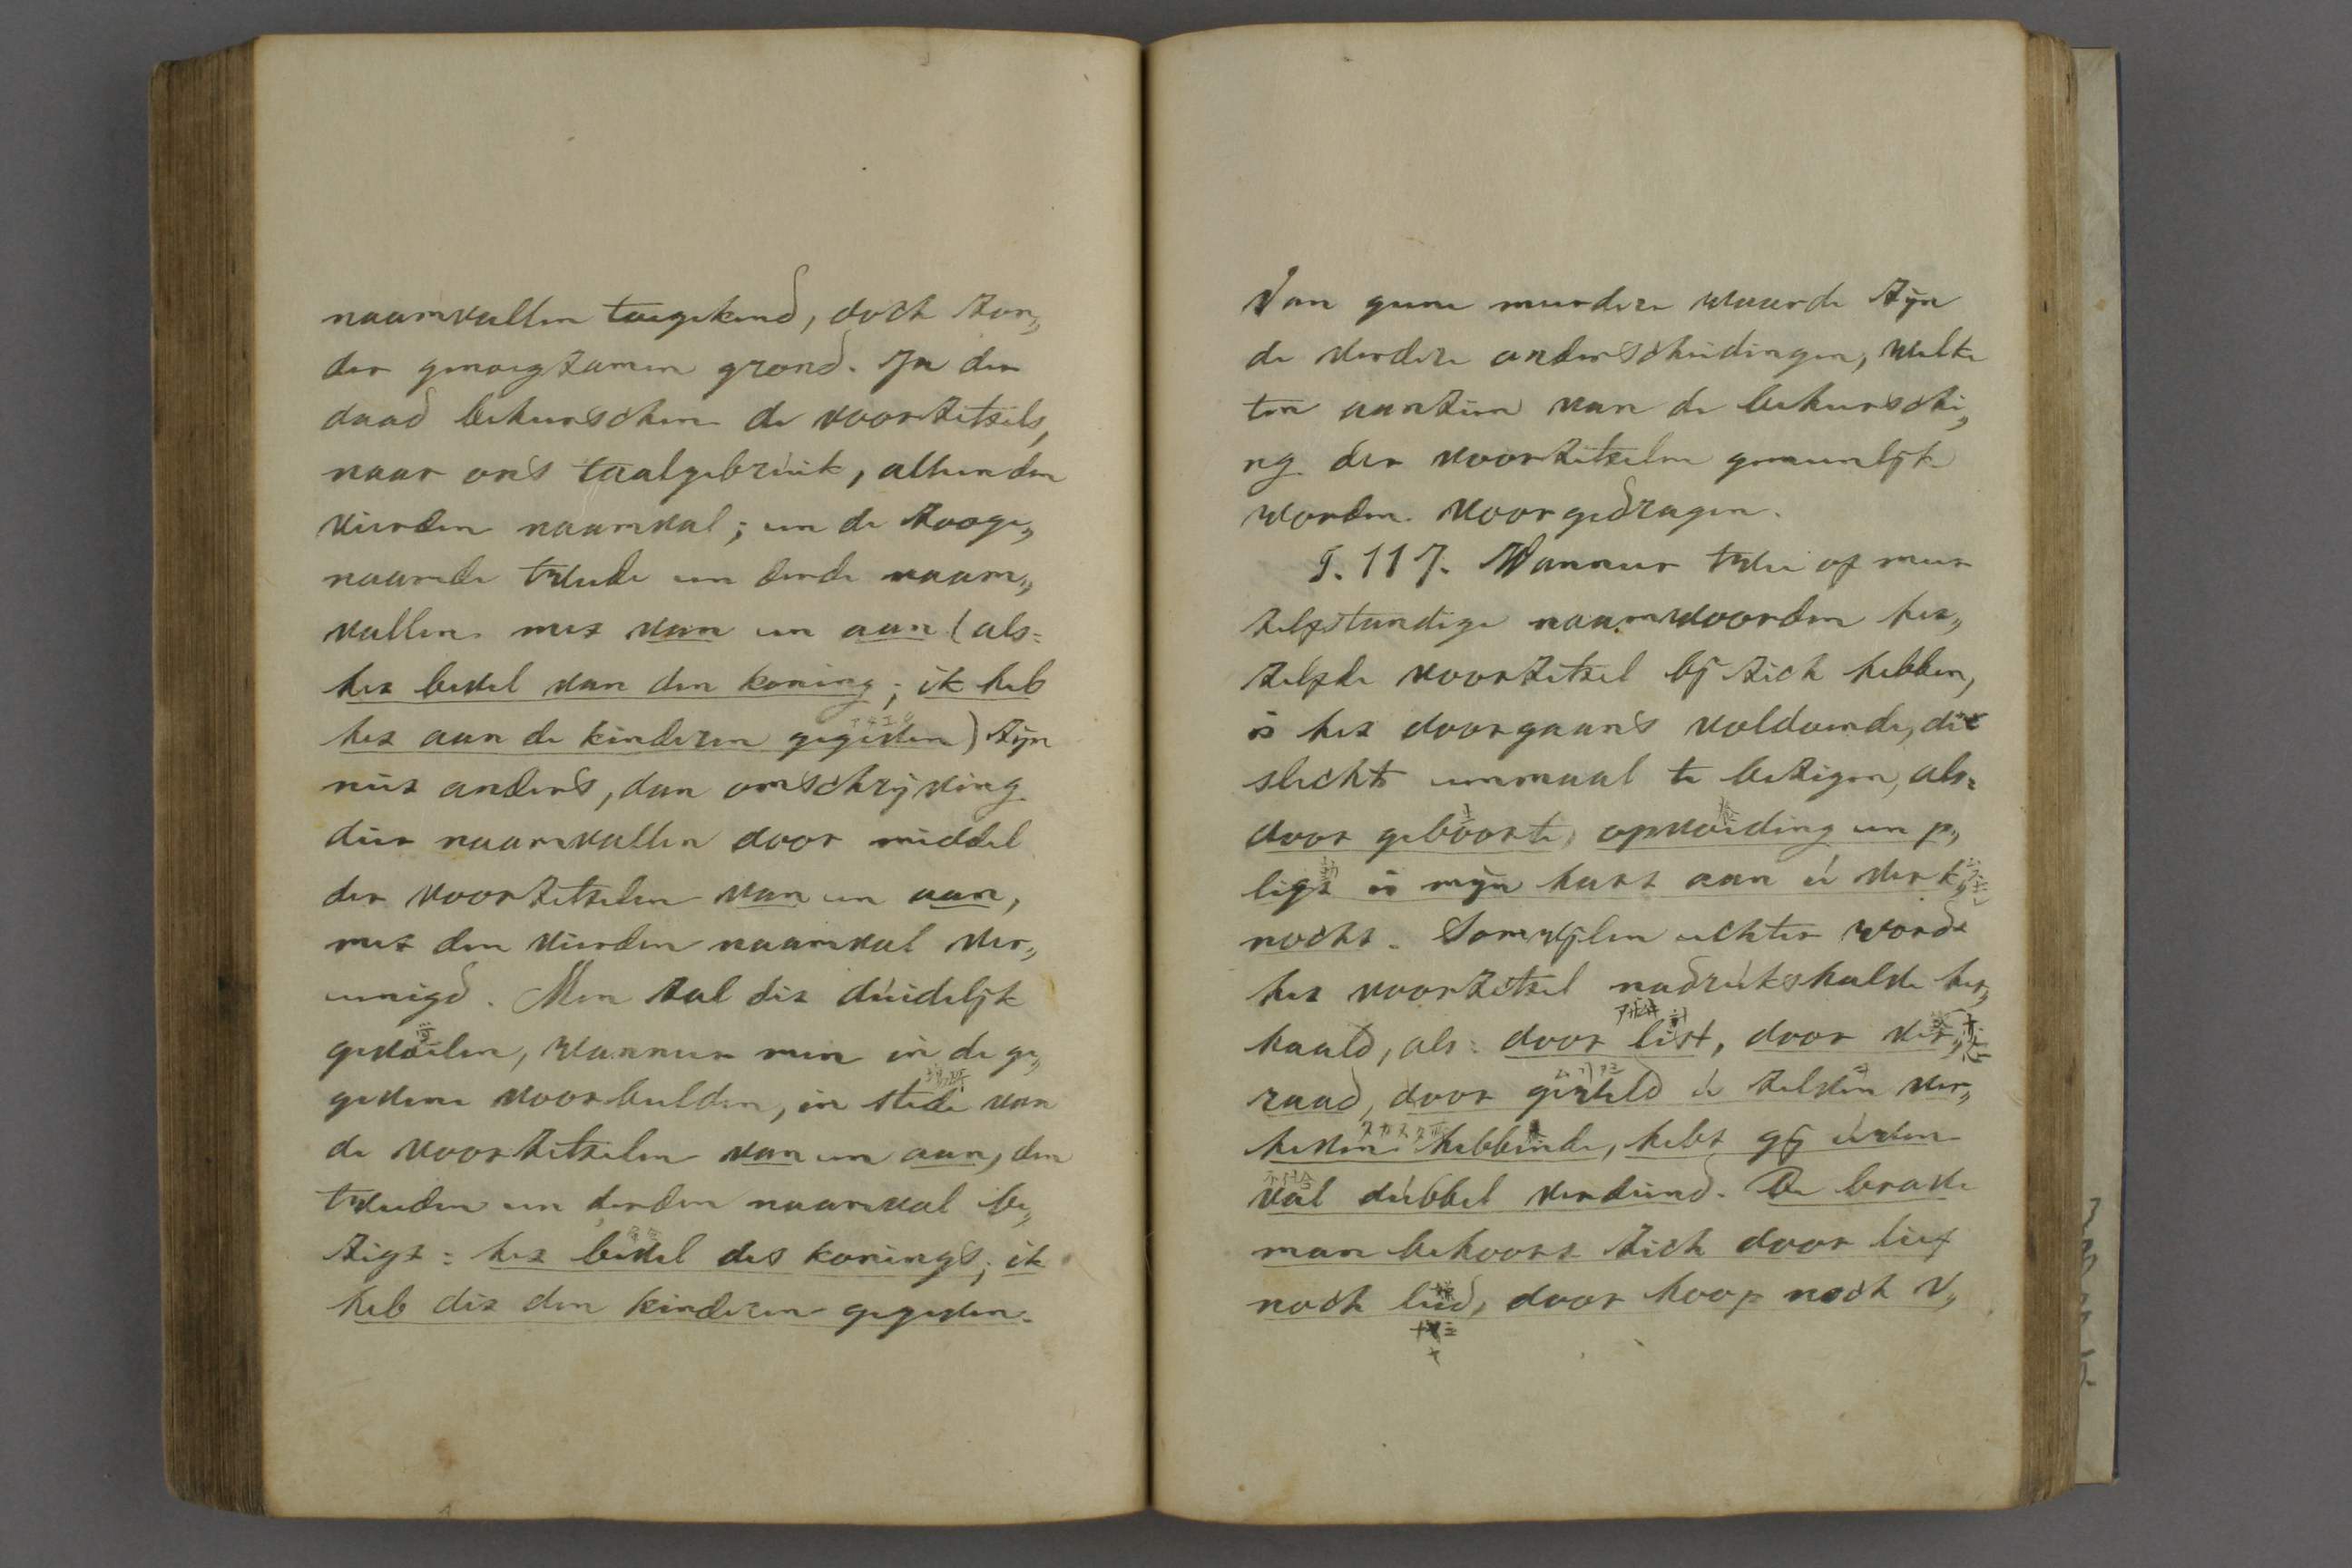 naamvallen toegekend, doch zon„
der genoegzamen grond. In der
daad beheerschen de voorzetsels,
naar ons taalgebruik, alleen den
vierden naamval; en de zooge„
naamde tweede en derde naam„
vallen met van en aan (als:
het bevel van den koning; ik heb
het aan de kinderen gegeven) zijn
niet anders, dan omschrijving
dier naamvallen door middel
der voorzetselen van en aan,
met den vierden naamval ver„
eenigd. Men zal dit duidelijk
gevoelen, wanneer men in de ge„
gevene voorbeelden, in stede van
de voorzetselen van en aan, den
tweeden en derden naamval be„
zigt: het bevel des konings; ik
heb dit den kinderen gegeven.
Van geene meerdere waarde zijn
de verdere onderscheidingen, welke
ten aanzien van de beheerschi„
ng der voorzetselen gemeenlijk
worden voorgedragen.
§. 117. Wanneer twee of meer
zelfstandige naamwoorden het„
zelfde voorzetsel bij zich hebben,
is het doorgaans voldoende, dit
slechts eenmaal te bezigen, als:
door geboorte, opvoeding en p„
ligt is mijn hart aan ú verk„
nocht. Somwijlen echter wordt
het voorzetsel nadrukshalve her„
haald, als: door list, door ver„
raad, door geweld ú zelven ver„
heven hebbende, hebt gij úwen
val dubbel verdiend. De brave
man behoort zich door lief
noch leed, door hoop noch v„